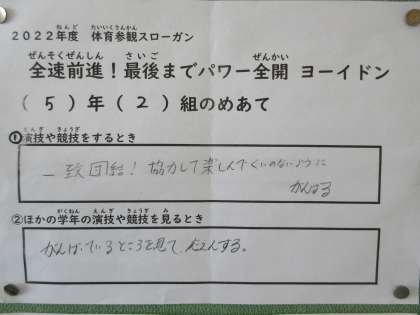 ２０２２年度　体育参観スローガン
全速前進！最後までパワー全開 ヨーイドン
（５）年（２）組のめあて
①演技や競技をするとき
一致団結！協力して楽しんでくいのないように
がんばる
②ほかの学年の演技や競技を見るとき
がんばっているところを見て、応えんする。